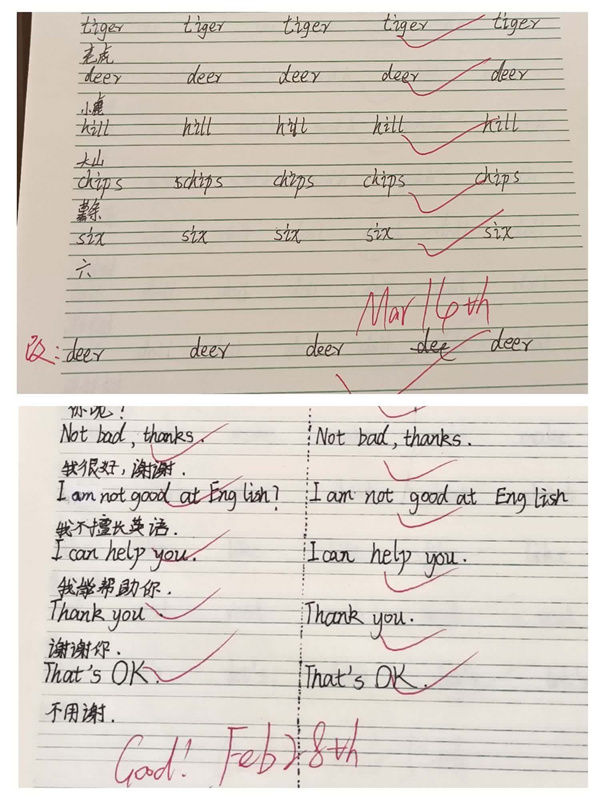 tiger tiger tiger tiger tiger
老虎
deer deer deer deer deer
小鹿
hill hill hill hill hill
大山
chips schips chips chips chips
薯条
six six six six six
六
Mar 16th
改: deer deer deer dee deer
你呢?
Not bad, thanks. Not bad, thanks.
我很好,谢谢.
I am not good at English? I am not good at English
我不擅长英语.
I can help you. I can help you.
我能帮助你.
Thank you. Thank you.
谢谢你.
That's OK. That's OK.
不用谢.
Good! Feb 28th